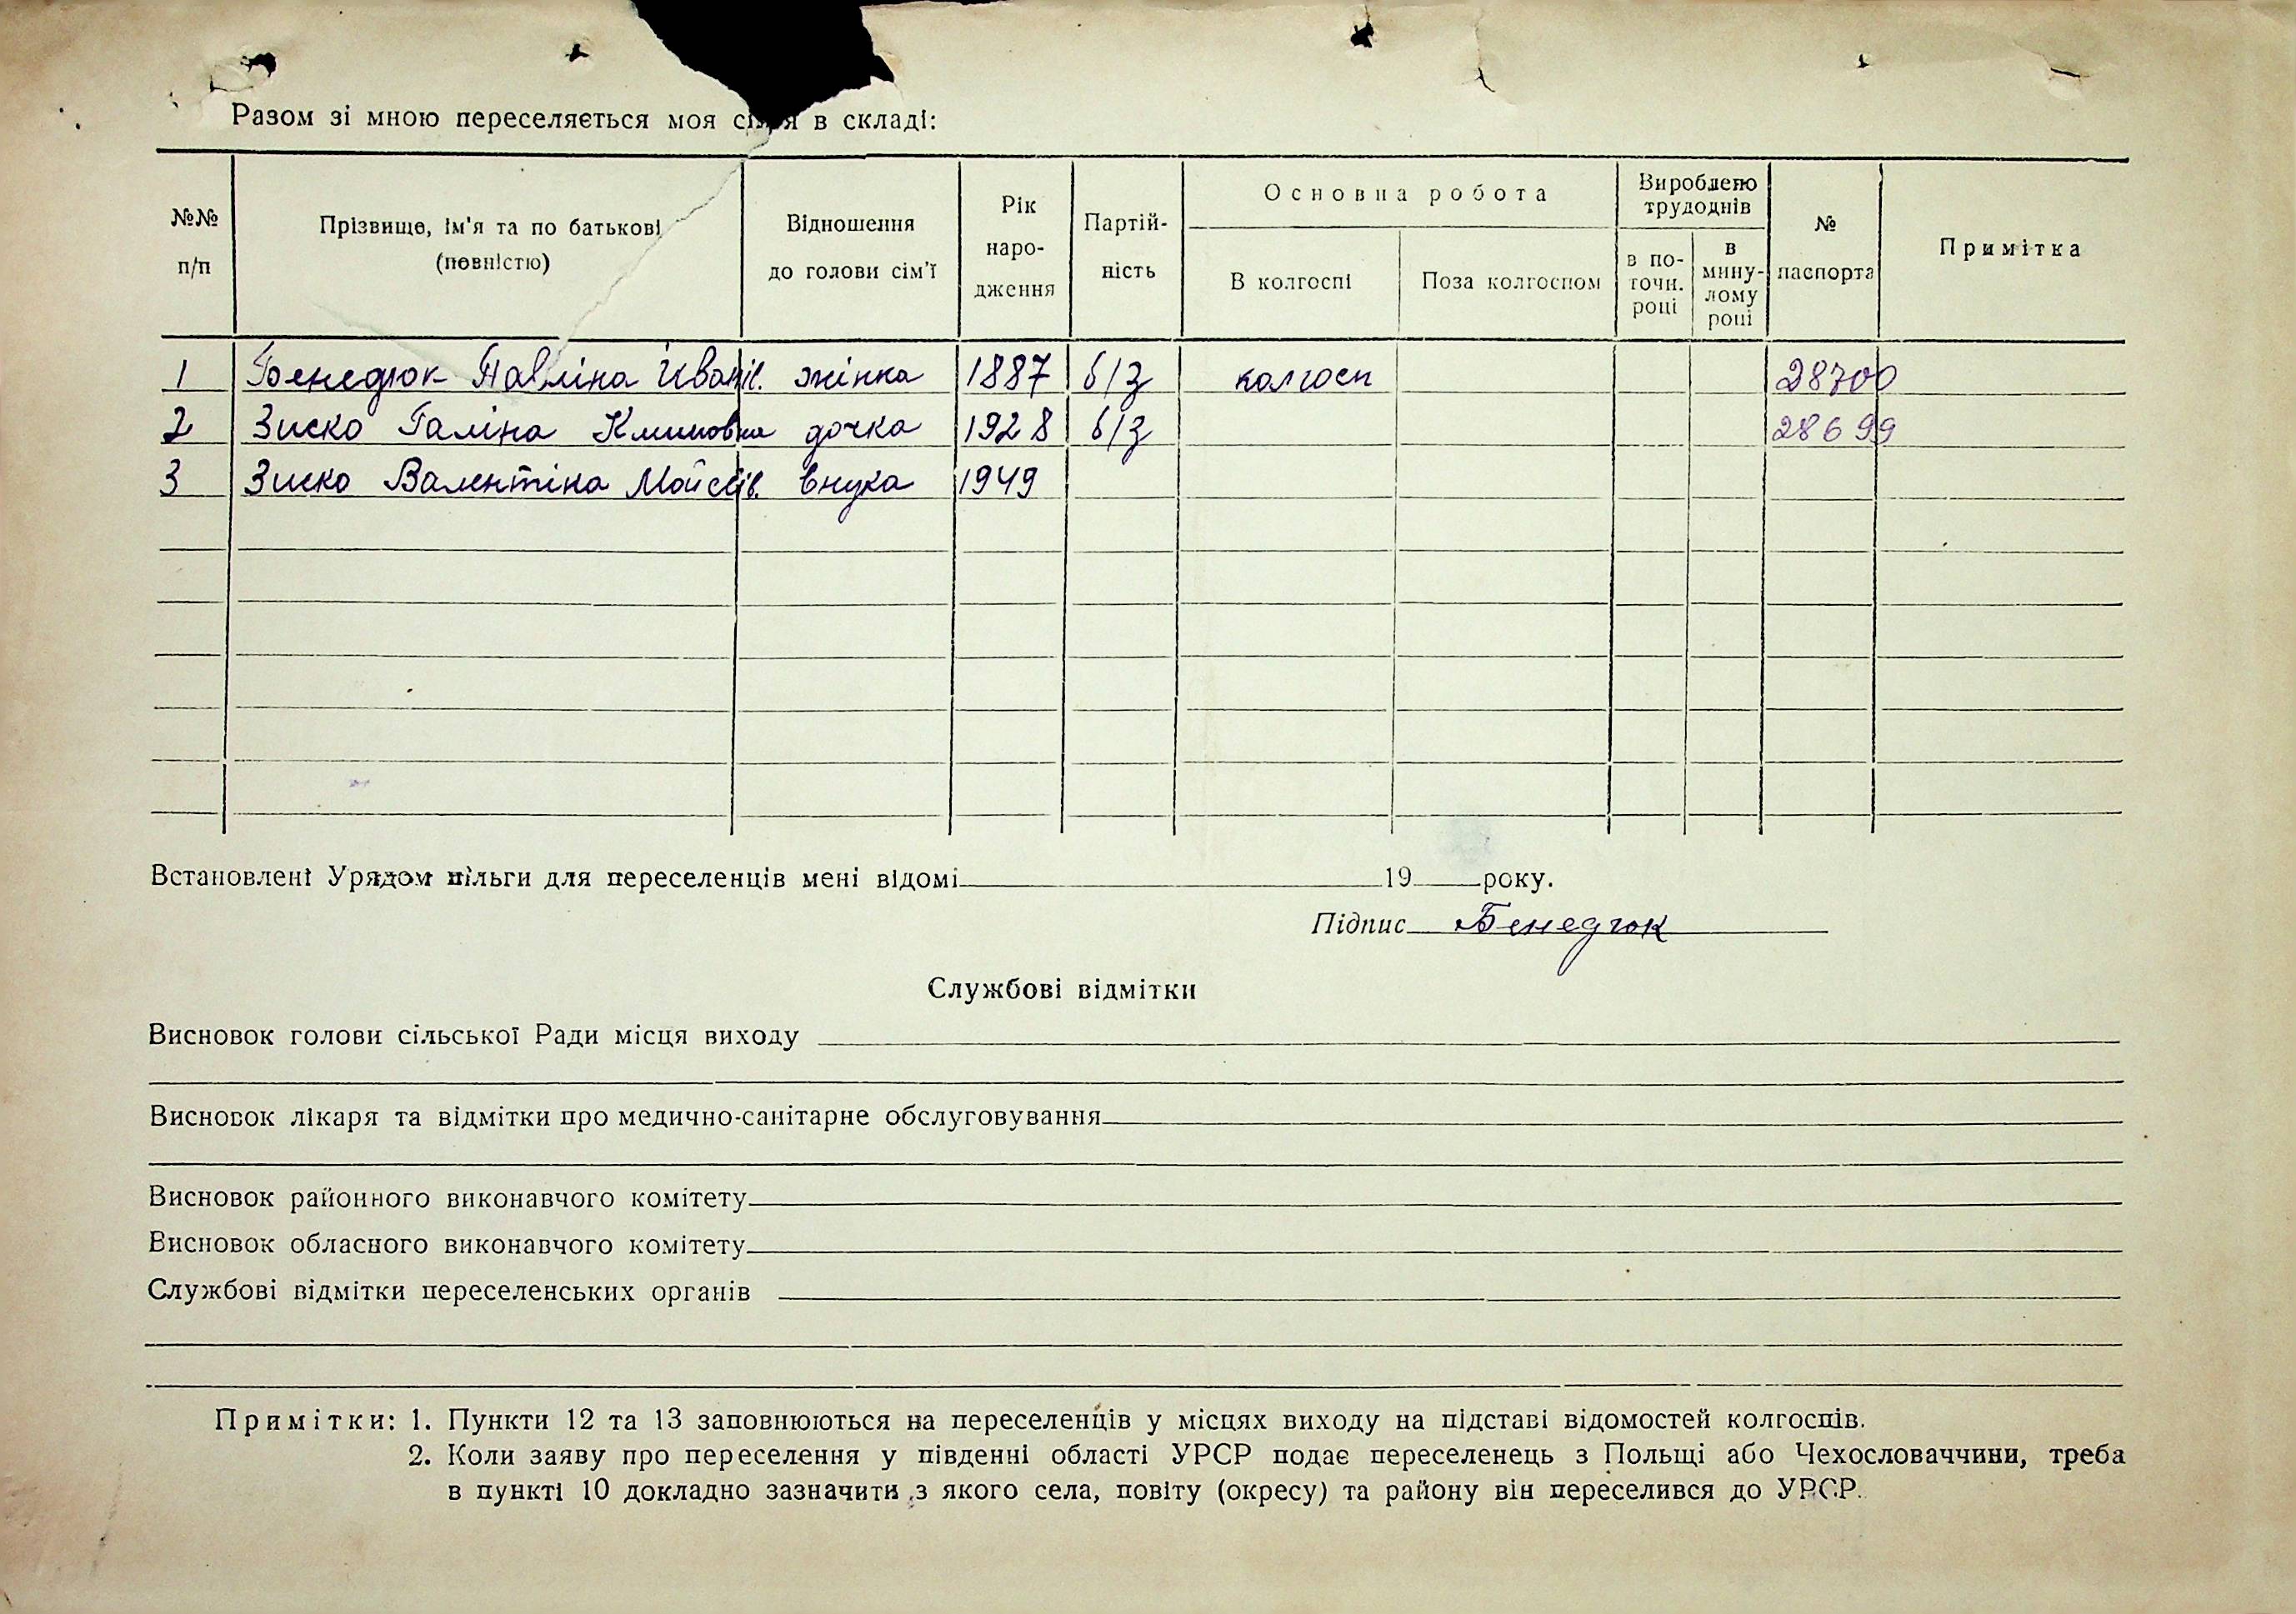 Разом зі мною переселяється моя сім'я в складі:
№№ п/п
Прізвище, ім'я та по батькові (повністю)
Відношення до голови сім'ї
Рік наро-дження
Партій-ність
Основна робота
В колгоспі
Поза колгоспом
Вироблено трудоднів
в по-точн. році
в мину-лому році
№ паспорта
Примітка
1 Бенедюк Павліна Іванів. жінка 1887 б/з колгосп 28700
2 Зиско Галіна Климовна дочка 1928 б/з 28699
3 Зиско Валентіна Мойсеїв. внука 1949
Встановлені Урядом пільги для переселенців мені відомі 19 року.
Підпис Бенедюк
Службові відмітки
Висновок голови сільської Ради місця виходу
Висновок лікаря та відмітки про медично-санітарне обслуговування
Висновок районного виконавчого комітету
Висновок обласного виконавчого комітету
Службові відмітки переселенських органів
Примітки: 1. Пункти 12 та 13 заповнюються на переселенців у місцях виходу на підставі відомостей колгоспів.
2. Коли заяву про переселення у південні області УРСР подає переселенець з Польщі або Чехословаччини, треба
в пункті 10 докладно зазначити з якого села, повіту (окресу) та району він переселився до УРСР.